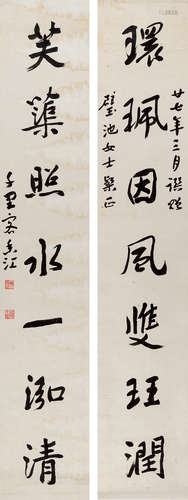 環珮因風雙玨潤
廿七年三月
璧池女士粲正
芙蕖照水一泓清
千里客香江